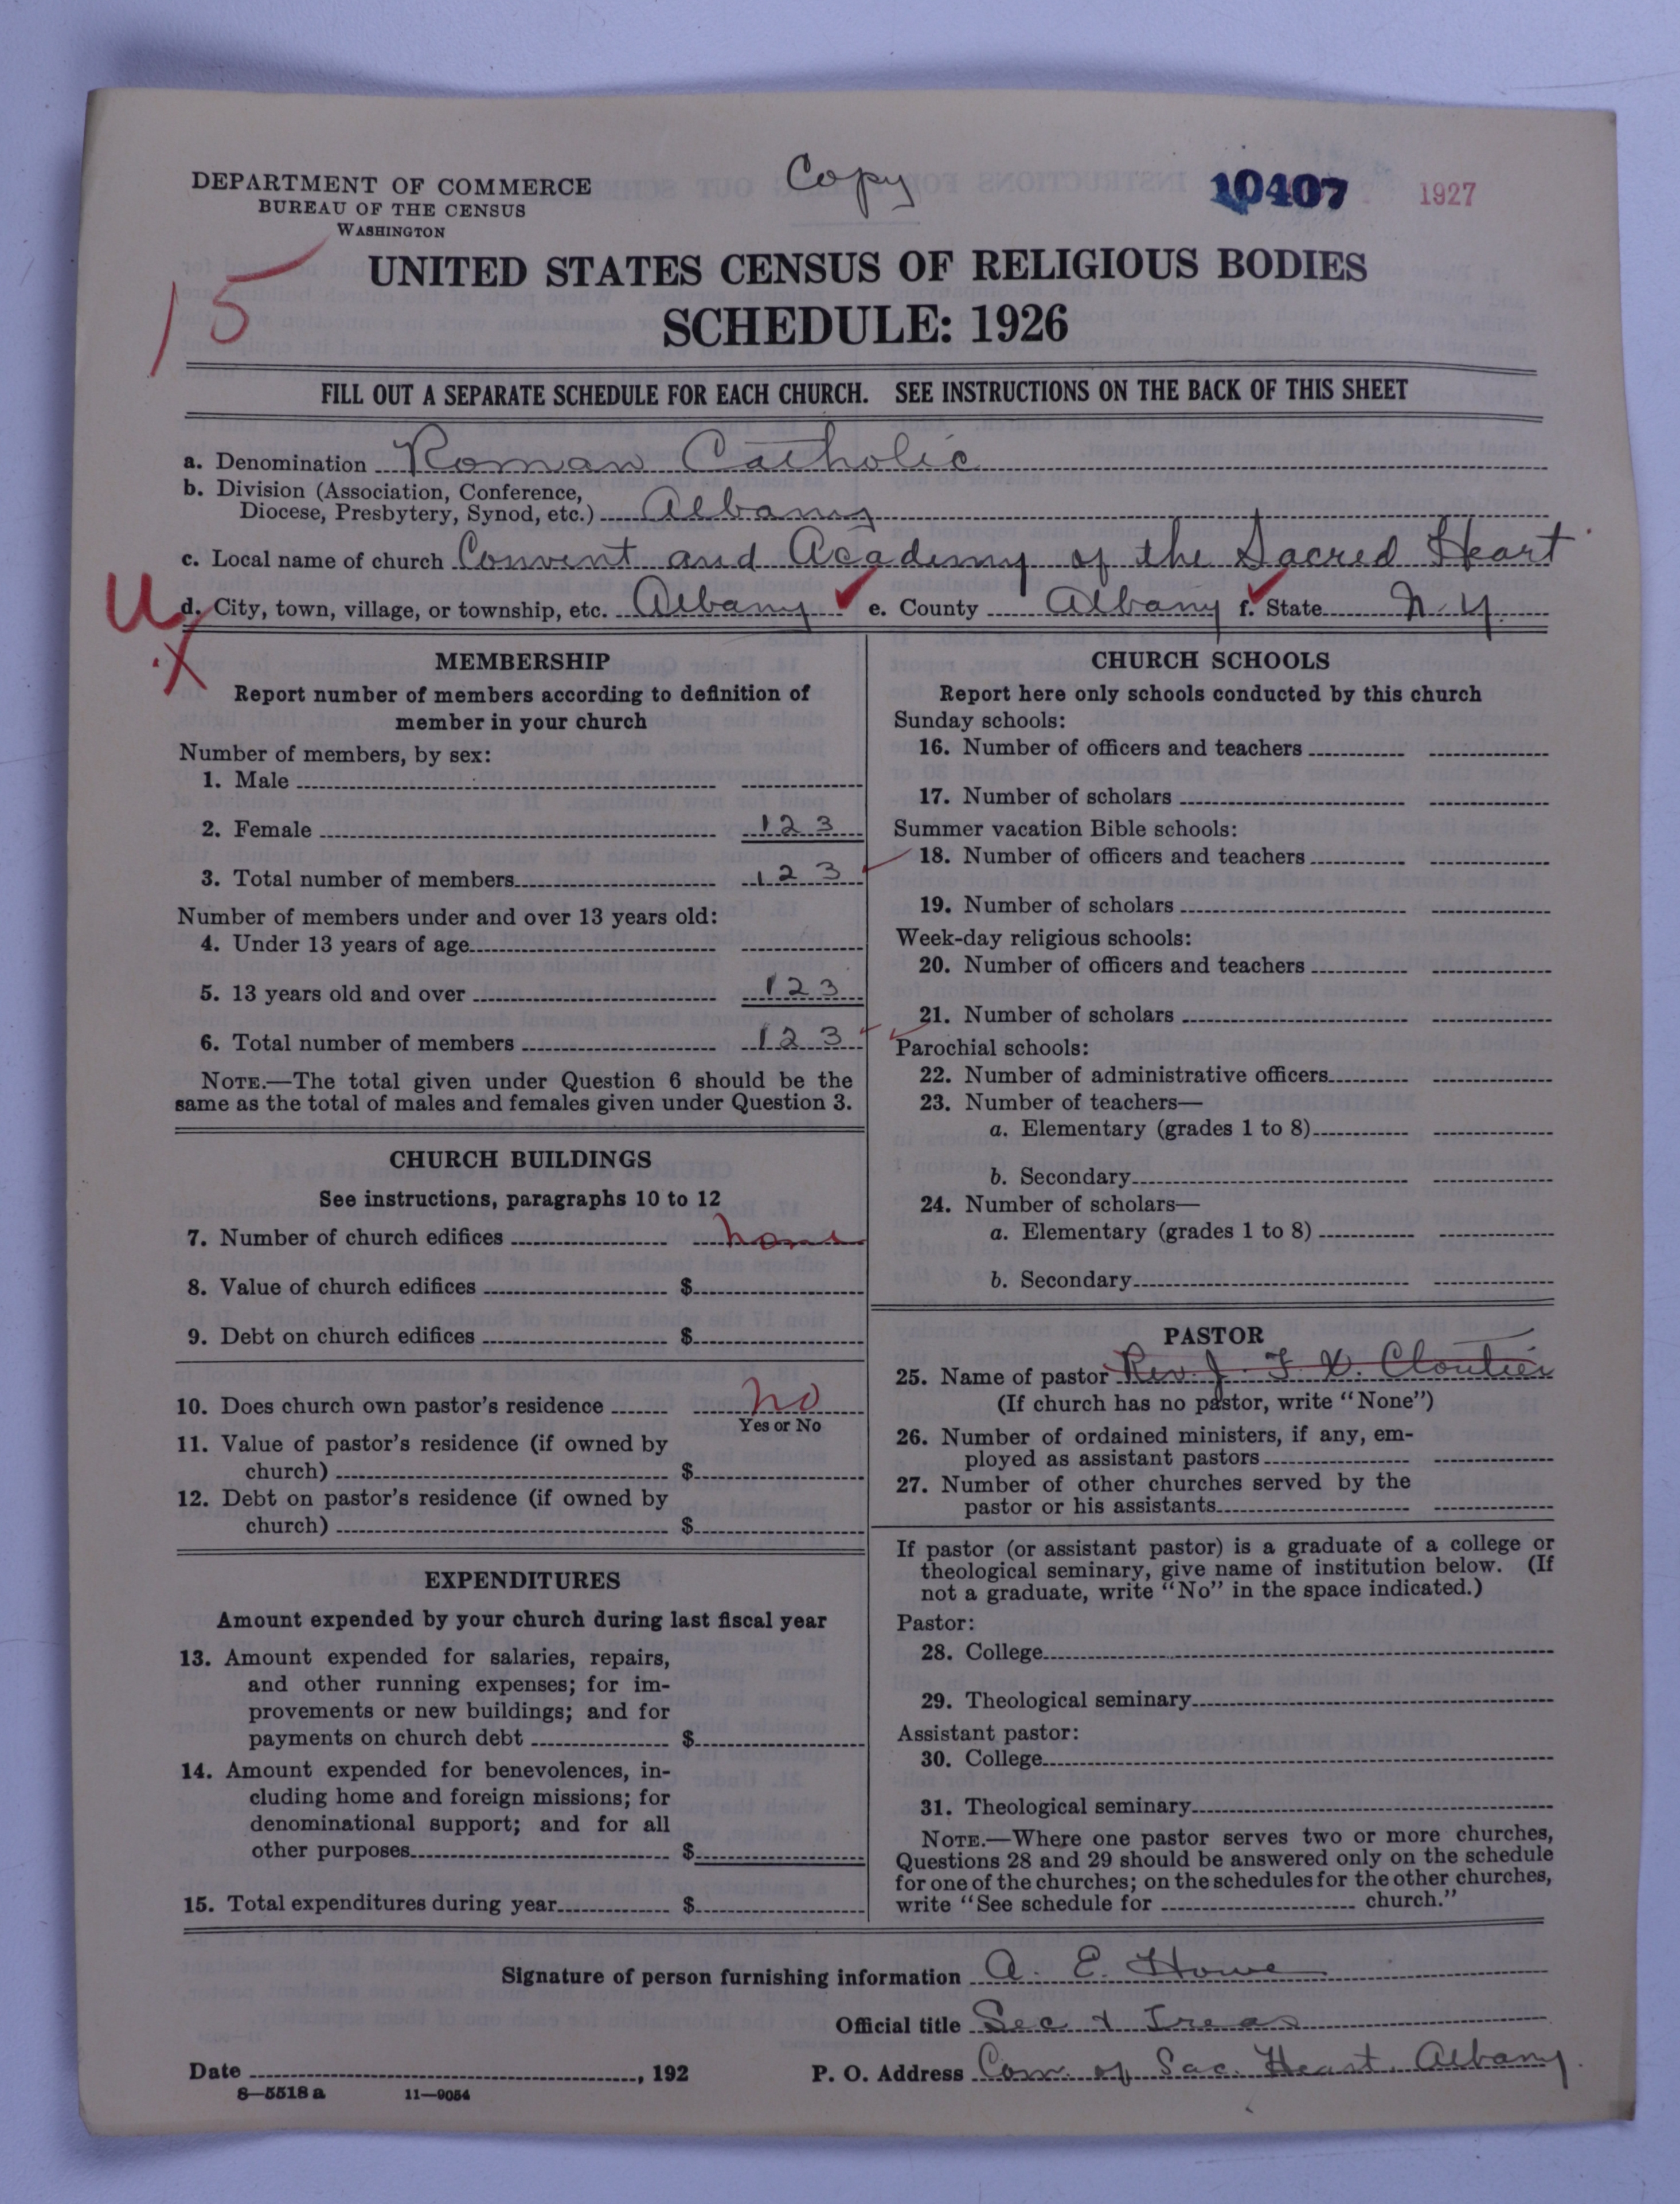 Copy
10407
1927
DEPARTMENT OF COMMERCE
BUREAU OF THE CENSUS
WASHINGTON
15
UNITED STATES CENSUS OF RELIGIOUS BODIES
SCHEDULE: 1926
FILL OUT A SEPARATE SCHEDULE FOR EACH CHURCH. SEE INSTRUCTIONS ON THE BACK OF THIS SHEET
a. Denomination Roman Catholic
b. Division (Association, Conference,
Diocese, Presbytery, Synod, etc.) Albany
c. Local name of church Convent and Academy of the Sacred Heart
U
d. City, town, village, or township, etc. Albany ✓ e. County Albany ✓ f. State N.Y.
X
MEMBERSHIP
Report number of members according to definition of
member in your church
Number of members, by sex:
1. Male
2. Female 123
3. Total number of members 123
Number of members under and over 13 years old:
4. Under 13 years of age
5. 13 years old and over 123
6. Total number of members 123
NOTE.—The total given under Question 6 should be the
same as the total of males and females given under Question 3.
CHURCH BUILDINGS
See instructions, paragraphs 10 to 12
7. Number of church edifices none
8. Value of church edifices $
9. Debt on church edifices $
10. Does church own pastor's residence no
Yes or No
11. Value of pastor's residence (if owned by
church) $
12. Debt on pastor's residence (if owned by
church) $
EXPENDITURES
Amount expended by your church during last fiscal year
13. Amount expended for salaries, repairs,
and other running expenses; for im-
provements or new buildings; and for
payments on church debt $
14. Amount expended for benevolences, in-
cluding home and foreign missions; for
denominational support; and for all
other purposes $
15. Total expenditures during year $
CHURCH SCHOOLS
Report here only schools conducted by this church
Sunday schools:
16. Number of officers and teachers
17. Number of scholars
Summer vacation Bible schools:
18. Number of officers and teachers
19. Number of scholars
Week-day religious schools:
20. Number of officers and teachers
21. Number of scholars
Parochial schools:
22. Number of administrative officers
23. Number of teachers—
a. Elementary (grades 1 to 8)
b. Secondary
24. Number of scholars—
a. Elementary (grades 1 to 8)
b. Secondary
PASTOR
25. Name of pastor Rev. J. F. X. Cloutier
(If church has no pastor, write "None")
26. Number of ordained ministers, if any, em-
ployed as assistant pastors
27. Number of other churches served by the
pastor or his assistants
If pastor (or assistant pastor) is a graduate of a college or
theological seminary, give name of institution below. (If
not a graduate, write "No" in the space indicated.)
Pastor:
28. College
29. Theological seminary
Assistant pastor:
30. College
31. Theological seminary
NOTE.—Where one pastor serves two or more churches,
Questions 28 and 29 should be answered only on the schedule
for one of the churches; on the schedules for the other churches,
write "See schedule for church."
Signature of person furnishing information A. E. Howe
Official title Sec & Treas
Date , 192
P. O. Address Con. of Sac. Heart, Albany.
8—5518 a 11—9054